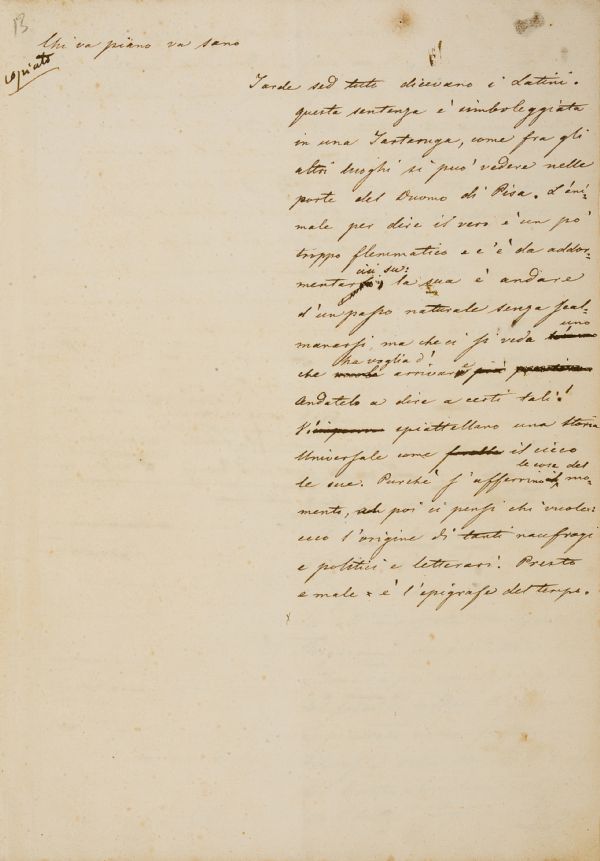 13
Chi va piano va sano
copiato
Tarde sed tuto dicevano i Latini.
questa sentenza è simboleggiata
in una Tartaruga, come fra gli
altri luoghi si può vedere nelle
porte del Duomo di Pisa. L'ani-
male per dire il vero è un pò
troppo flemmatico e c'è da addor-
ivi su:
mentar la sua è andare
d'un passo naturale senza scal-
manarsi, ma che ci si veda uno
ha voglia d'
che arrivare
Andatelo a dire a certi tali!
V' spiattellano una storia
Universale come il cieco
le cose del
le sue. Purchè s'afferrino mo-
mento, poi ci pensi chi vuole:
ecco l'origine di tanti naufragi
e politici e letterari. Presto
e male è l'epigrafe del tempo.